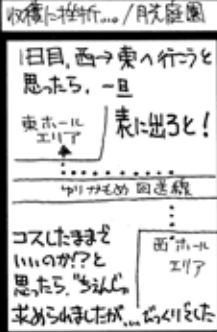 収穫に挫折…。/月読庭園
1日目,西→東へ行こうと
思ったら、一旦
表に出ろと!
東ホール
エリア
ゆりかもめ 回送線
西ホール
エリア
コスしたままで
いいのか!?と
思ったら,
求められましたが…びっくりでした